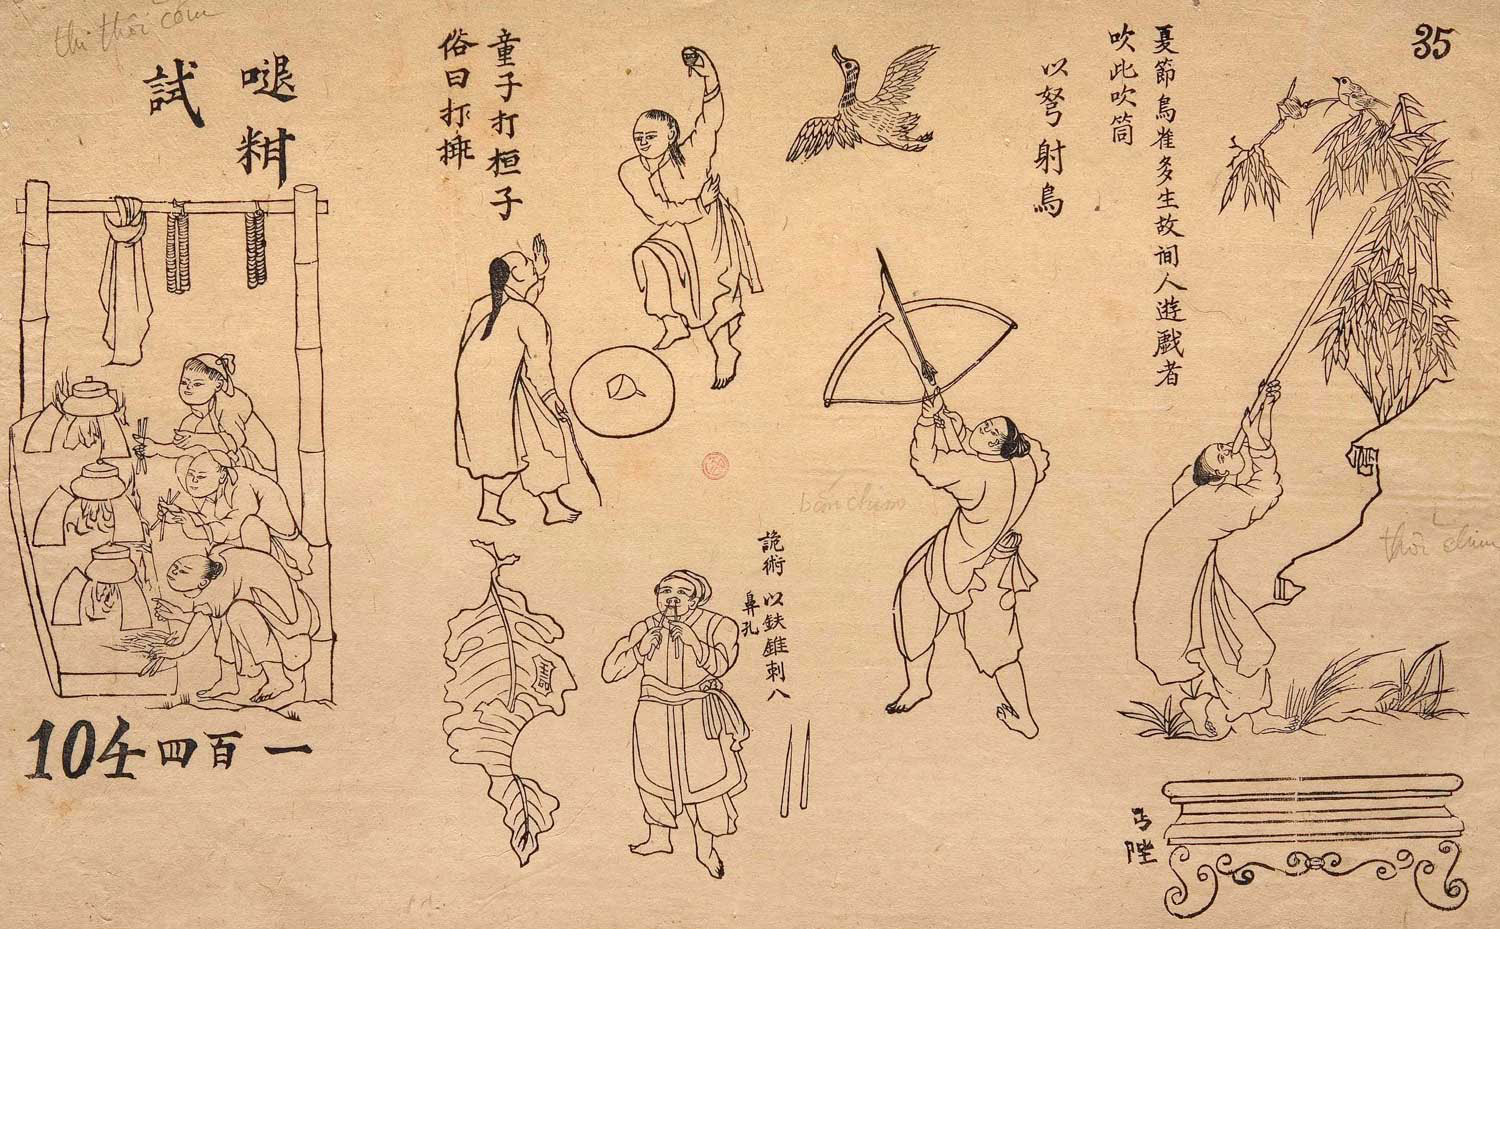 35
夏節鳥雀多生故间人遊戲者
吹此吹筒
以弩射鳥
童子打桓子
俗曰打
試
thi thổi cơm
bắn chim
thổi chim
詭術 以鈇錐刺入
鼻孔
一百四
104